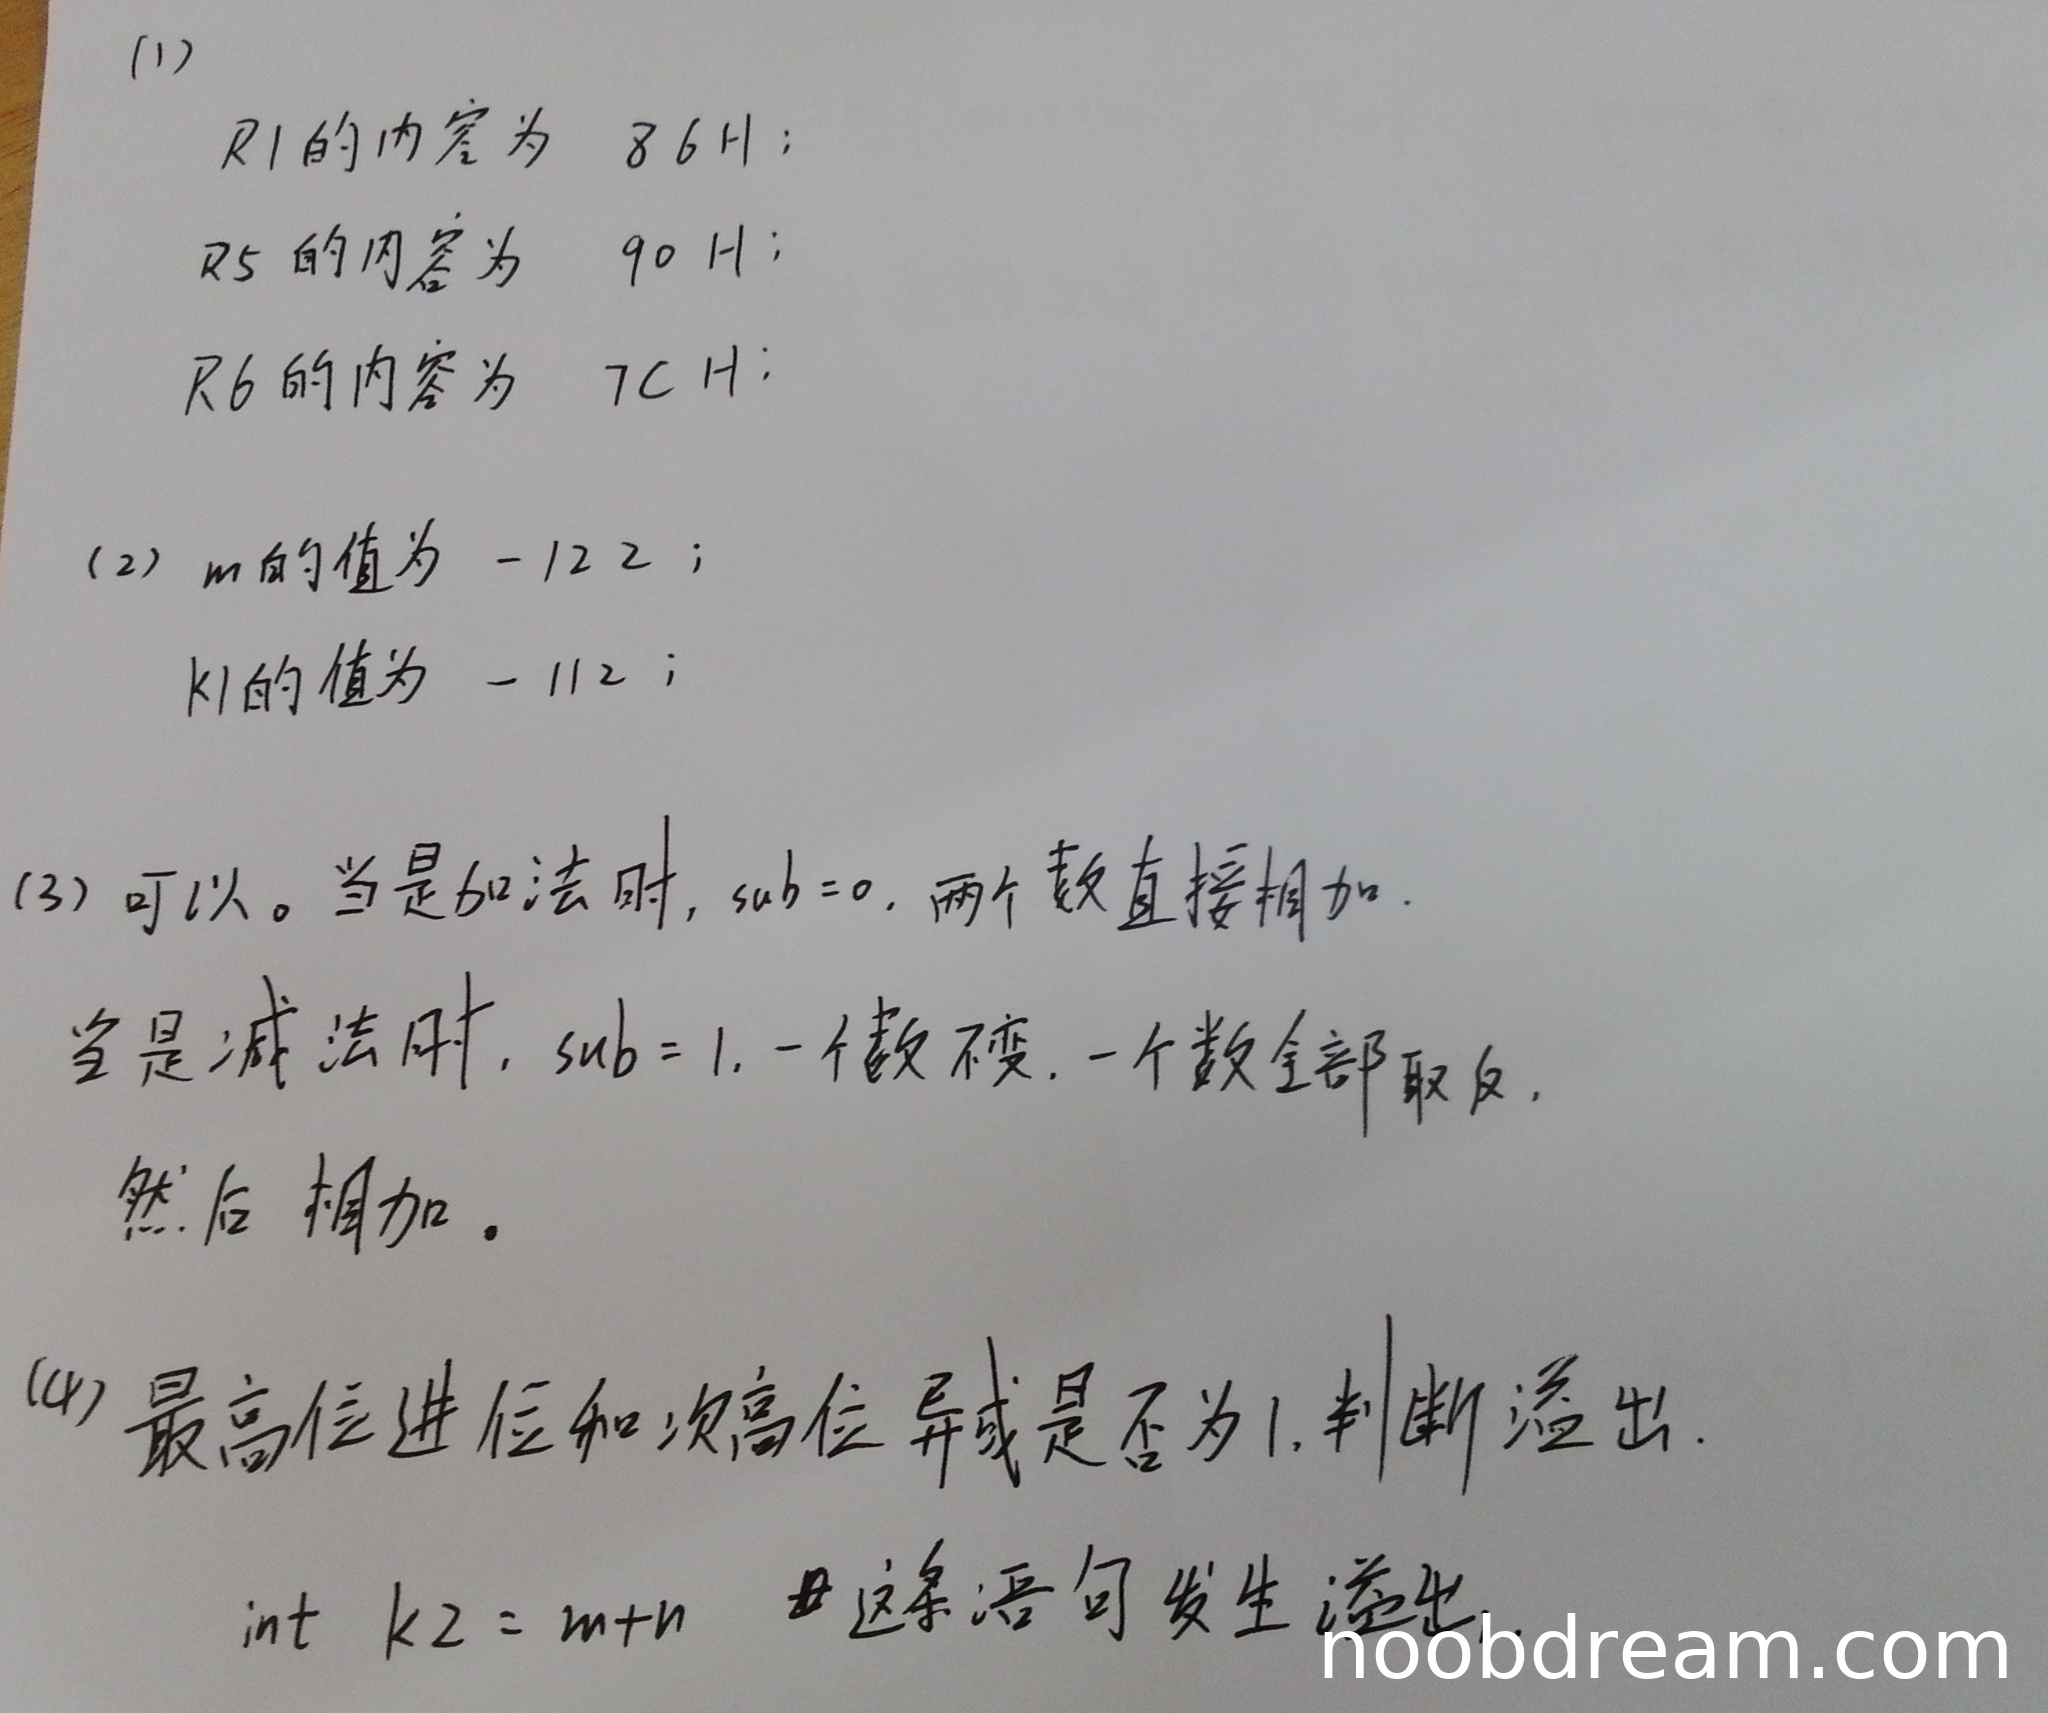 (1)
R1的内容为 86H;
R5的内容为 90H;
R6的内容为 7CH;
(2) m的值为 -122;
k1的值为 -112;
(3) 可以。当是加法时, sub=0. 两个数直接相加.
当是减法时, sub=1. 一个数不变. 一个数全部取反,
然后相加.
(4) 最高位进位和次高位异或是否为1.判断溢出.
int k2=m+n 这条语句发生溢出.
noobdream.com